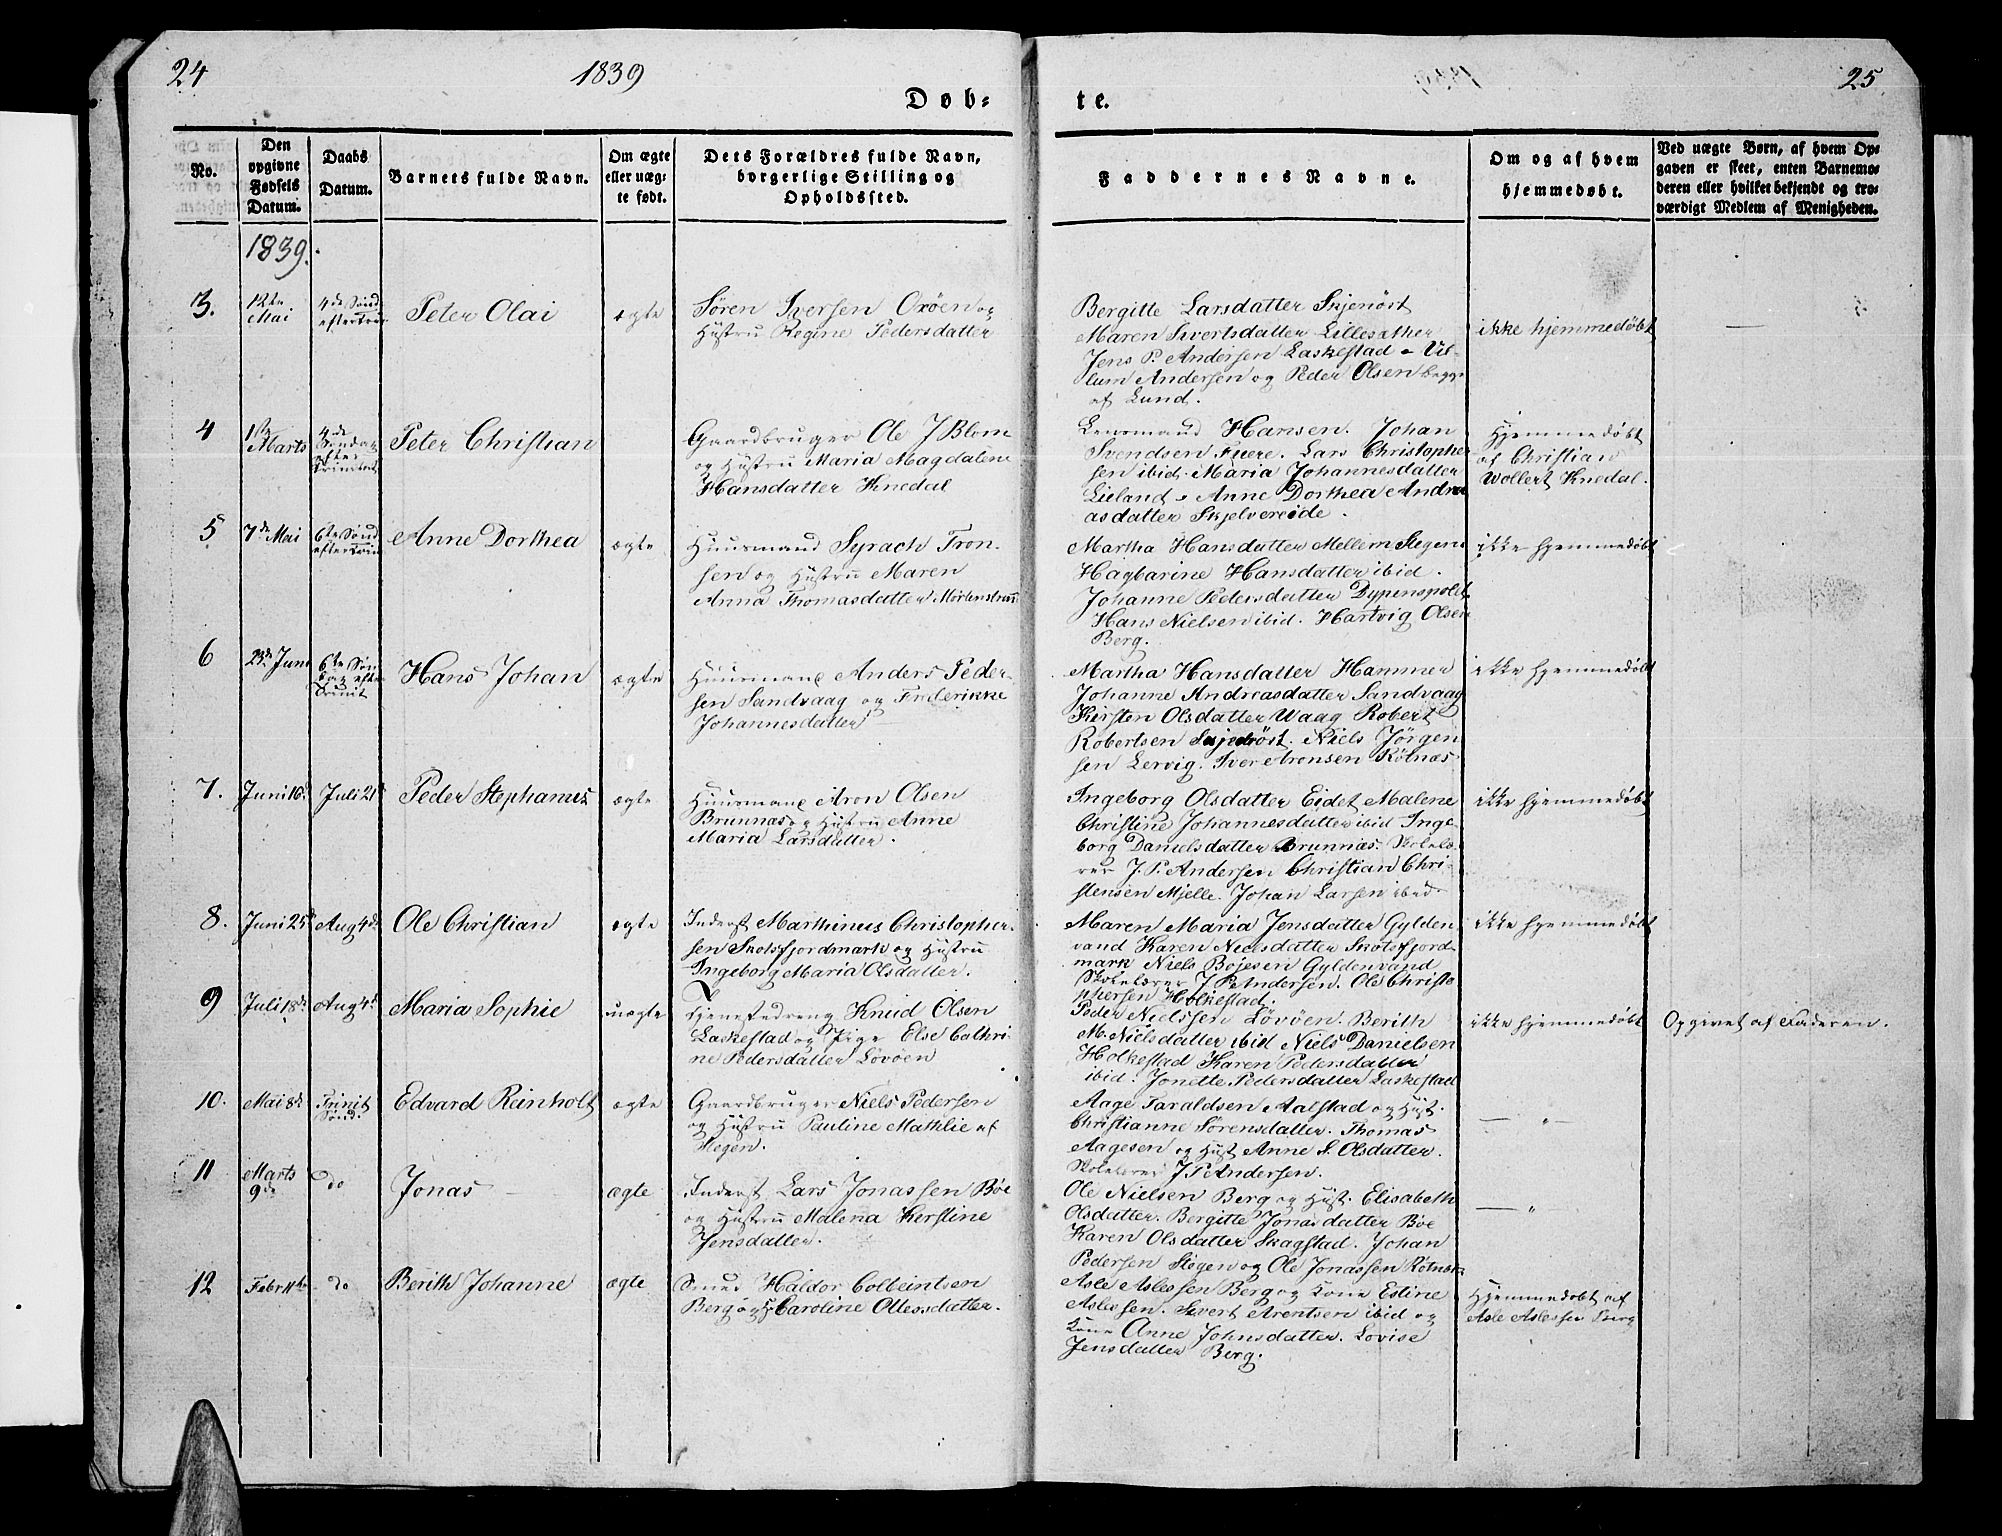 24
1839
Døb-
te.
25
No.
Den opgivne Fødsels Datum.
Daabs Datum.
Barnets fulde Navn.
Om ægte eller uæg-te født.
Dets Forældres fulde Navn, borgerlige Stilling og Opholdssted.
Faddernes Navne.
Om og af hvem hjemmedøbt.
Ved uægte Børn, af hvem Op-gaven er skeet, enten Barnemo-deren eller hvilket bekjendt og tro-værdigt Medlem af Menigheden.
1839.
3.
12te Mai
4de Sønd efter Trin
Peter Olai
ægte
Søren Iversen Oxöen og
Hustru Regine Pedersdatter
Bergitte Larsdatter Skjenöst
Maren Sivertsdatter Lillesather
Jens P. Andersen Laskestad - Vil-
lum Andersen og Peder Olsen begge
af Lund.
ikke hjemmedøbt
4
1ste Marts
4de Søndag efter Trinitat
Peter Christian
Gaardbruger Ole J Blom
og Hustru Maria Magdalene
Hansdatter Knedal
Lensmand Hansen. Johan
Svendsen Fuere. Lars Christophe
sen ibid. Maria Johannesdatter
Lieland - Anne Dorthea Andre
asdatter Skjelvereide.
Hjemmedøbt
af Christian
Wollert Knedal.
5
7de Mai
6te Sønd efter Trin
Anne Dorthea
ægte
Huusmand Syrach Tron-
sen og Hustru Maren
Anna Thomasdatter
Martha Hansdatter Mellem Stegen
Hagbarine Hansdatter ibid.
Johanne Pedersdatter Dypenspolet
Hans Nielsen ibid. Hartvig Olsen
Berg.
ikke hjemmedøbt
6
23de Juni
6te Søn dag efter Trinit
Hans Johan
ægte
Huusmand Anders Peder-
sen Sandvaag og Frederikke
Johannesdatter
Martha Hansdatter Hammer
Johanne Andreasdatter Sandvaag
Kirsten Olsdatter Waag Robert
Robertsen Skjedröst. Niels Jörgen
sen Lervig. Iver Arensen Rötnæs
ikke hjemmedøbt
7.
Juni 10de
Juli 21
Peder Stephanus
ægte
Huusmand Aron Olsen
Brunnæs og Hustru Anne
Maria Larsdatter.
Ingeborg Olsdatter Eidet Malene
Christine Johannesdatter ibid Inge
borg Danielsdatter Brunnæs. Skolelæ-
rer J. P. Andersen Christian Chri-
stensen Mjelle. Johan Larsen ibid
ikke hjemmedøbt
8.
Juni 25
Aug 4de
Ole Christian
ægte
Inderst Marthinus Christopher-
sen Skotsfjordmark og Hustru
Ingeborg Maria Olsdatter.
Maren Maria Jensdatter Gylden
vand Karen Nielsdatter Skotsfjord
mark Niels Bojesen Gyldenvand
Skolelærer J P Andersen. Ole Christo
phersen Holkestad.
ikke hjemmedøbt
9
Juli 18de
Aug 4de
Maria Sophie
uægte
Tjenestedreng Knud Olsen
Laskestad og Pige Else Cathri-
ne Pedersdatter Lövöen
Peder Nielssen Lövöen. Berith
M. Nielsdatter ibid Niels Danielsen
Holkestad Karen Pedersdatter
ibid. Jonette Pedersdatter Laskestad
ikke hjemmedøbt
Opgivet af Faderen.
10.
Mai 8de
Trinit Sønd.
Edvard Reinholt
ægte
Gaardbruger Niels Pedersen
og Hustru Pauline Mathlie af
Stegen.
Aage Taraldsen Aalstad og Hust.
Christianne Sorensdatter. Thomas
Aagesen og Hust Anne S. Olsdatter.
Skolelærer J P Andersen.
— " —
11
Marts 9de
do
Jonas
ægte
Inderst Lars Jonassen Böe
og Hustru Malena Kerstine
Jensdatter.
Ole Nielsen Berg og Hust. Elisabeth
Olsdatter. Bergitte Jonasdatter Böe
Karen Olsdatter Skagstad. Johan
Pedersen Stegen og Ole Jonassen Rötnæs
— "
12
Febr 11te
do
Berith Johanne
ægte
Smed Haldor Colbeintsen
Berg og H Caroline Ollessdatter.
Asle Aslessen Berg og Kone Estine
Aslessen. Sivert Arentsen ibid og
Kone Anne Johnsdatter. Lovise
Jensdatter Berg.
Hjemmedøbt af
Asle Aslessen Berg